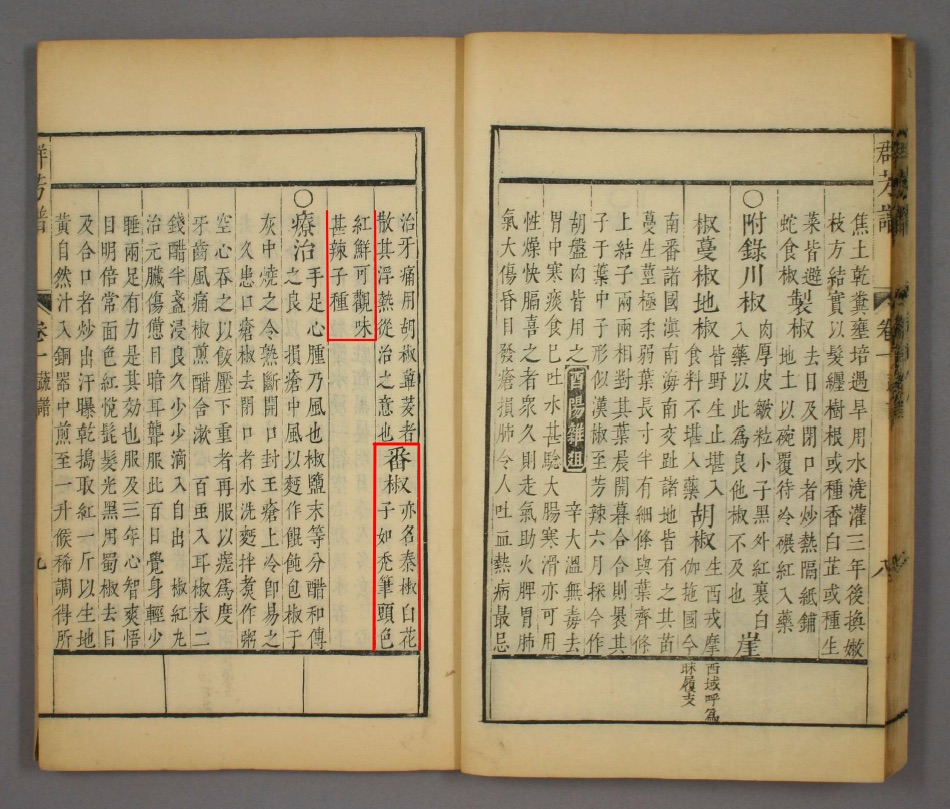 群芳譜
卷一
八
焦土乾糞壅培遇旱用水澆灌三年後換嫩
枝方結實以髮纏樹根或種香白芷或種生
菜皆避
蛇食椒
製椒
去目及閉口者炒熱隔紙鋪
地土以碗覆待冷碾紅入藥
○附錄川椒
肉厚皮皺粒小子黑外紅裏白
入藥以此為良他椒不及也
崖
椒蔓椒地椒
皆野生止堪入
食料不堪入藥
胡椒
生西戎摩
伽拖國今
西域呼為
昧履支
南番諸國滇南海南交趾諸地皆有之其苗
蔓生莖極柔弱葉長寸半有細條與葉齊條
上結子兩兩相對其葉晨開暮合合則裹其
子于葉中子形似漢椒至芳辣六月採今作
胡盤肉皆用之 酉陽雜俎 辛大溫無毒去
胃中寒痰食已吐水甚驗大腸寒滑亦可用
性燥快膈喜之者眾久則走氣助火脾胃肺
氣大傷昏目發瘡損肺令人吐血熱病最忌
治牙痛用胡椒蓽茇者
散其浮熱從治之意也
番椒
亦名秦椒白花
子如禿筆頭色
紅鮮可觀味
甚辣子種
○療治
手足心腫乃風也椒鹽末等分醋和傅
之良 損瘡中風以麪作餛飩包椒于
灰中燒之令熟斷開口封王瘡上冷卽易之
久患口瘡椒去閉口者水洗麪拌煑作粥
空心吞之以飯壓下重者再服以瘥為度
牙齒風痛椒煎醋含漱 百虫入耳椒末二
錢醋半盞浸良久少少滴入自出 椒紅丸
治元臟傷憊目暗耳聾服此百日覺身輕少
睡兩足有力是其效也服及三年心智爽悟
目明倍常面色紅悅髭髮光黑用蜀椒去目
及合口者炒出汗曝乾搗取紅一斤以生地
黃自然汁入銅器中煎至一升候稀調得所
群芳譜
卷一 蔬譜
九